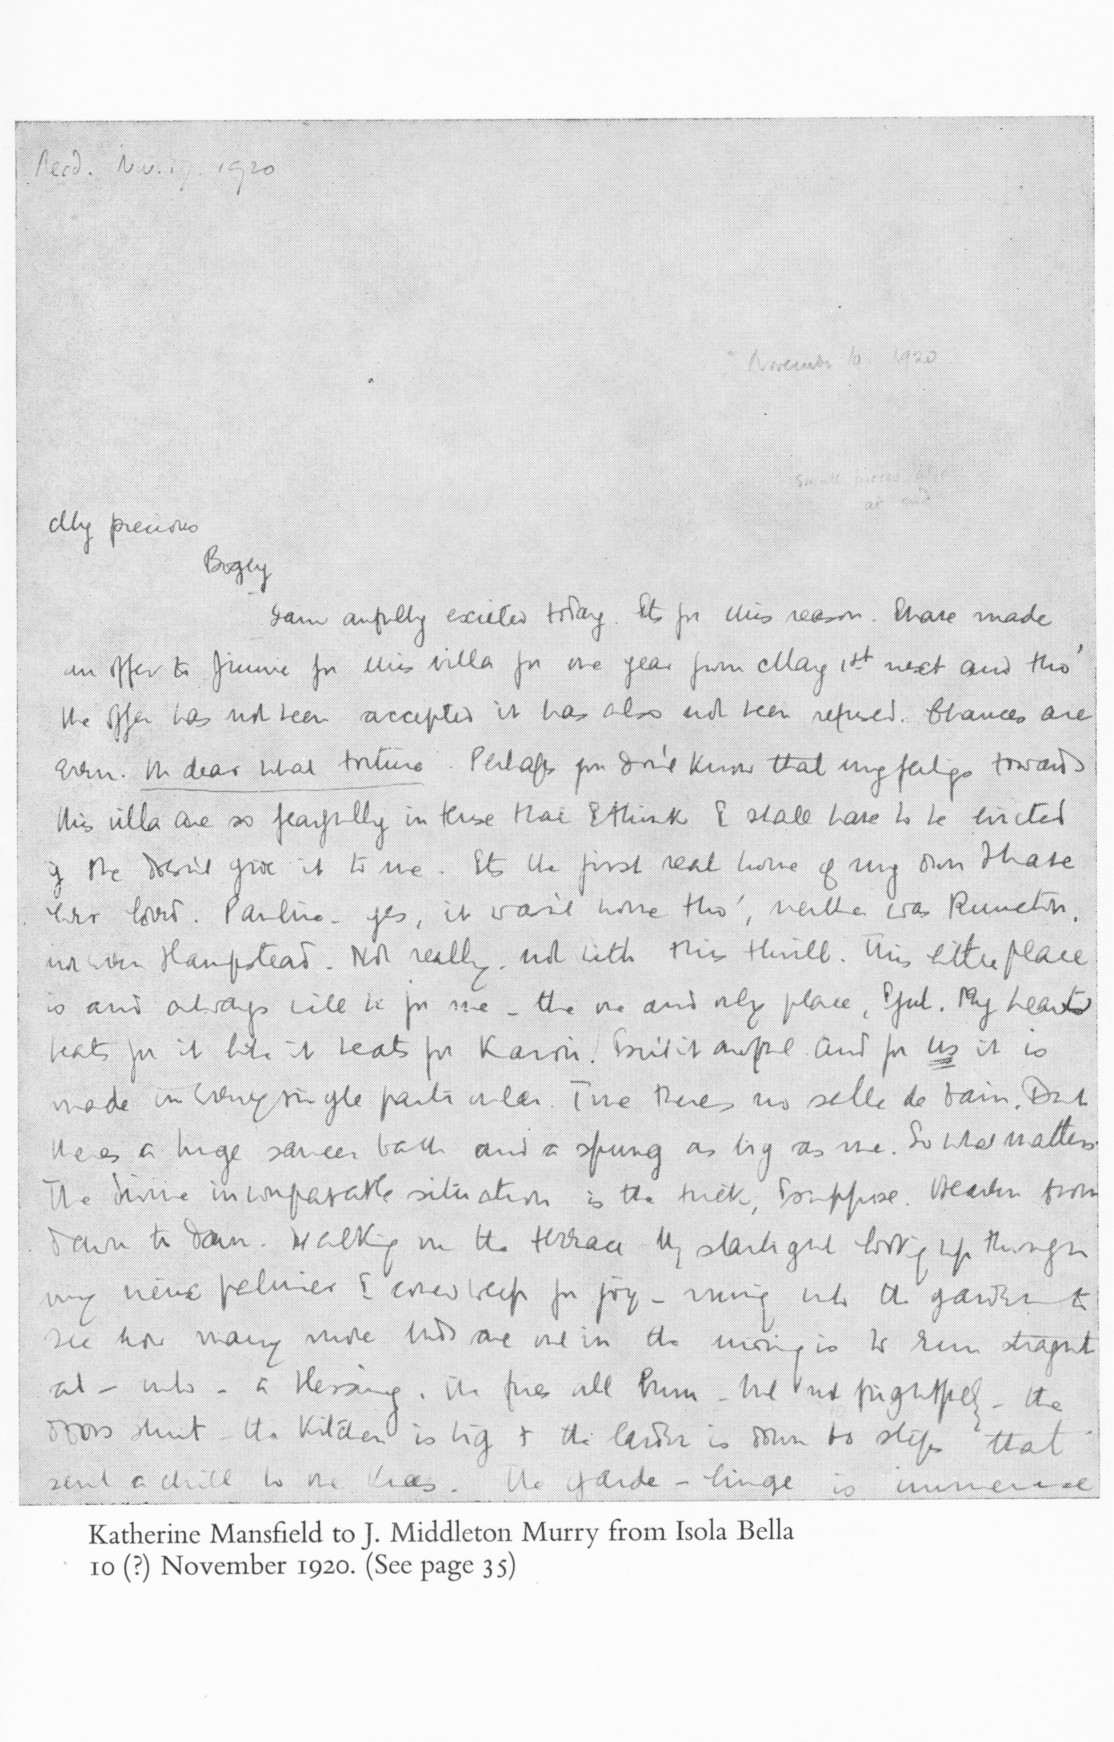 Recd. Nov. 17. 1920
November 10 1920
at end
My precious
Bogey
I am awfully excited today. Its for this reason. I have made
an offer to Jinnie for this villa for one year from May 1st next and tho'
the offer has not been accepted it has also not been refused. Chances are
even. Oh dear what torture. Perhaps you don't know that my feelings towards
this villa are so fearfully intense that I think I shall have to be evicted
if she doesn't give it to me. Its the first real home of my own I have
ever loved. Pauline - yes, it wasn't home tho', neither was Runcton,
not even Hampstead. Not really, not with this thrill. This little place
is and always will be for me - the one and only place, I feel. My heart
beats for it like it beats for Karori. Isn't it awful. And for us it is
made in every single particular. True theres no salle de bain. But
theres a huge saucer bath and a spung as big as me. So what matters
The divine incomparable situation is the trick, I suppose. Heaven from
dawn to dawn. Walking on the terrace by starlight looking up through
my vieux palmier I could weep for joy - running into the garden to
see how many more buds are out in the morning is to run straight
at - into - a blessing. The fires all burn - but not frightfully - the
doors shut - the kitchen is big & the larder is down 10 steps that
send a chill to one knees. The garde-linge is immense
Katherine Mansfield to J. Middleton Murry from Isola Bella
10 (?) November 1920. (See page 35)